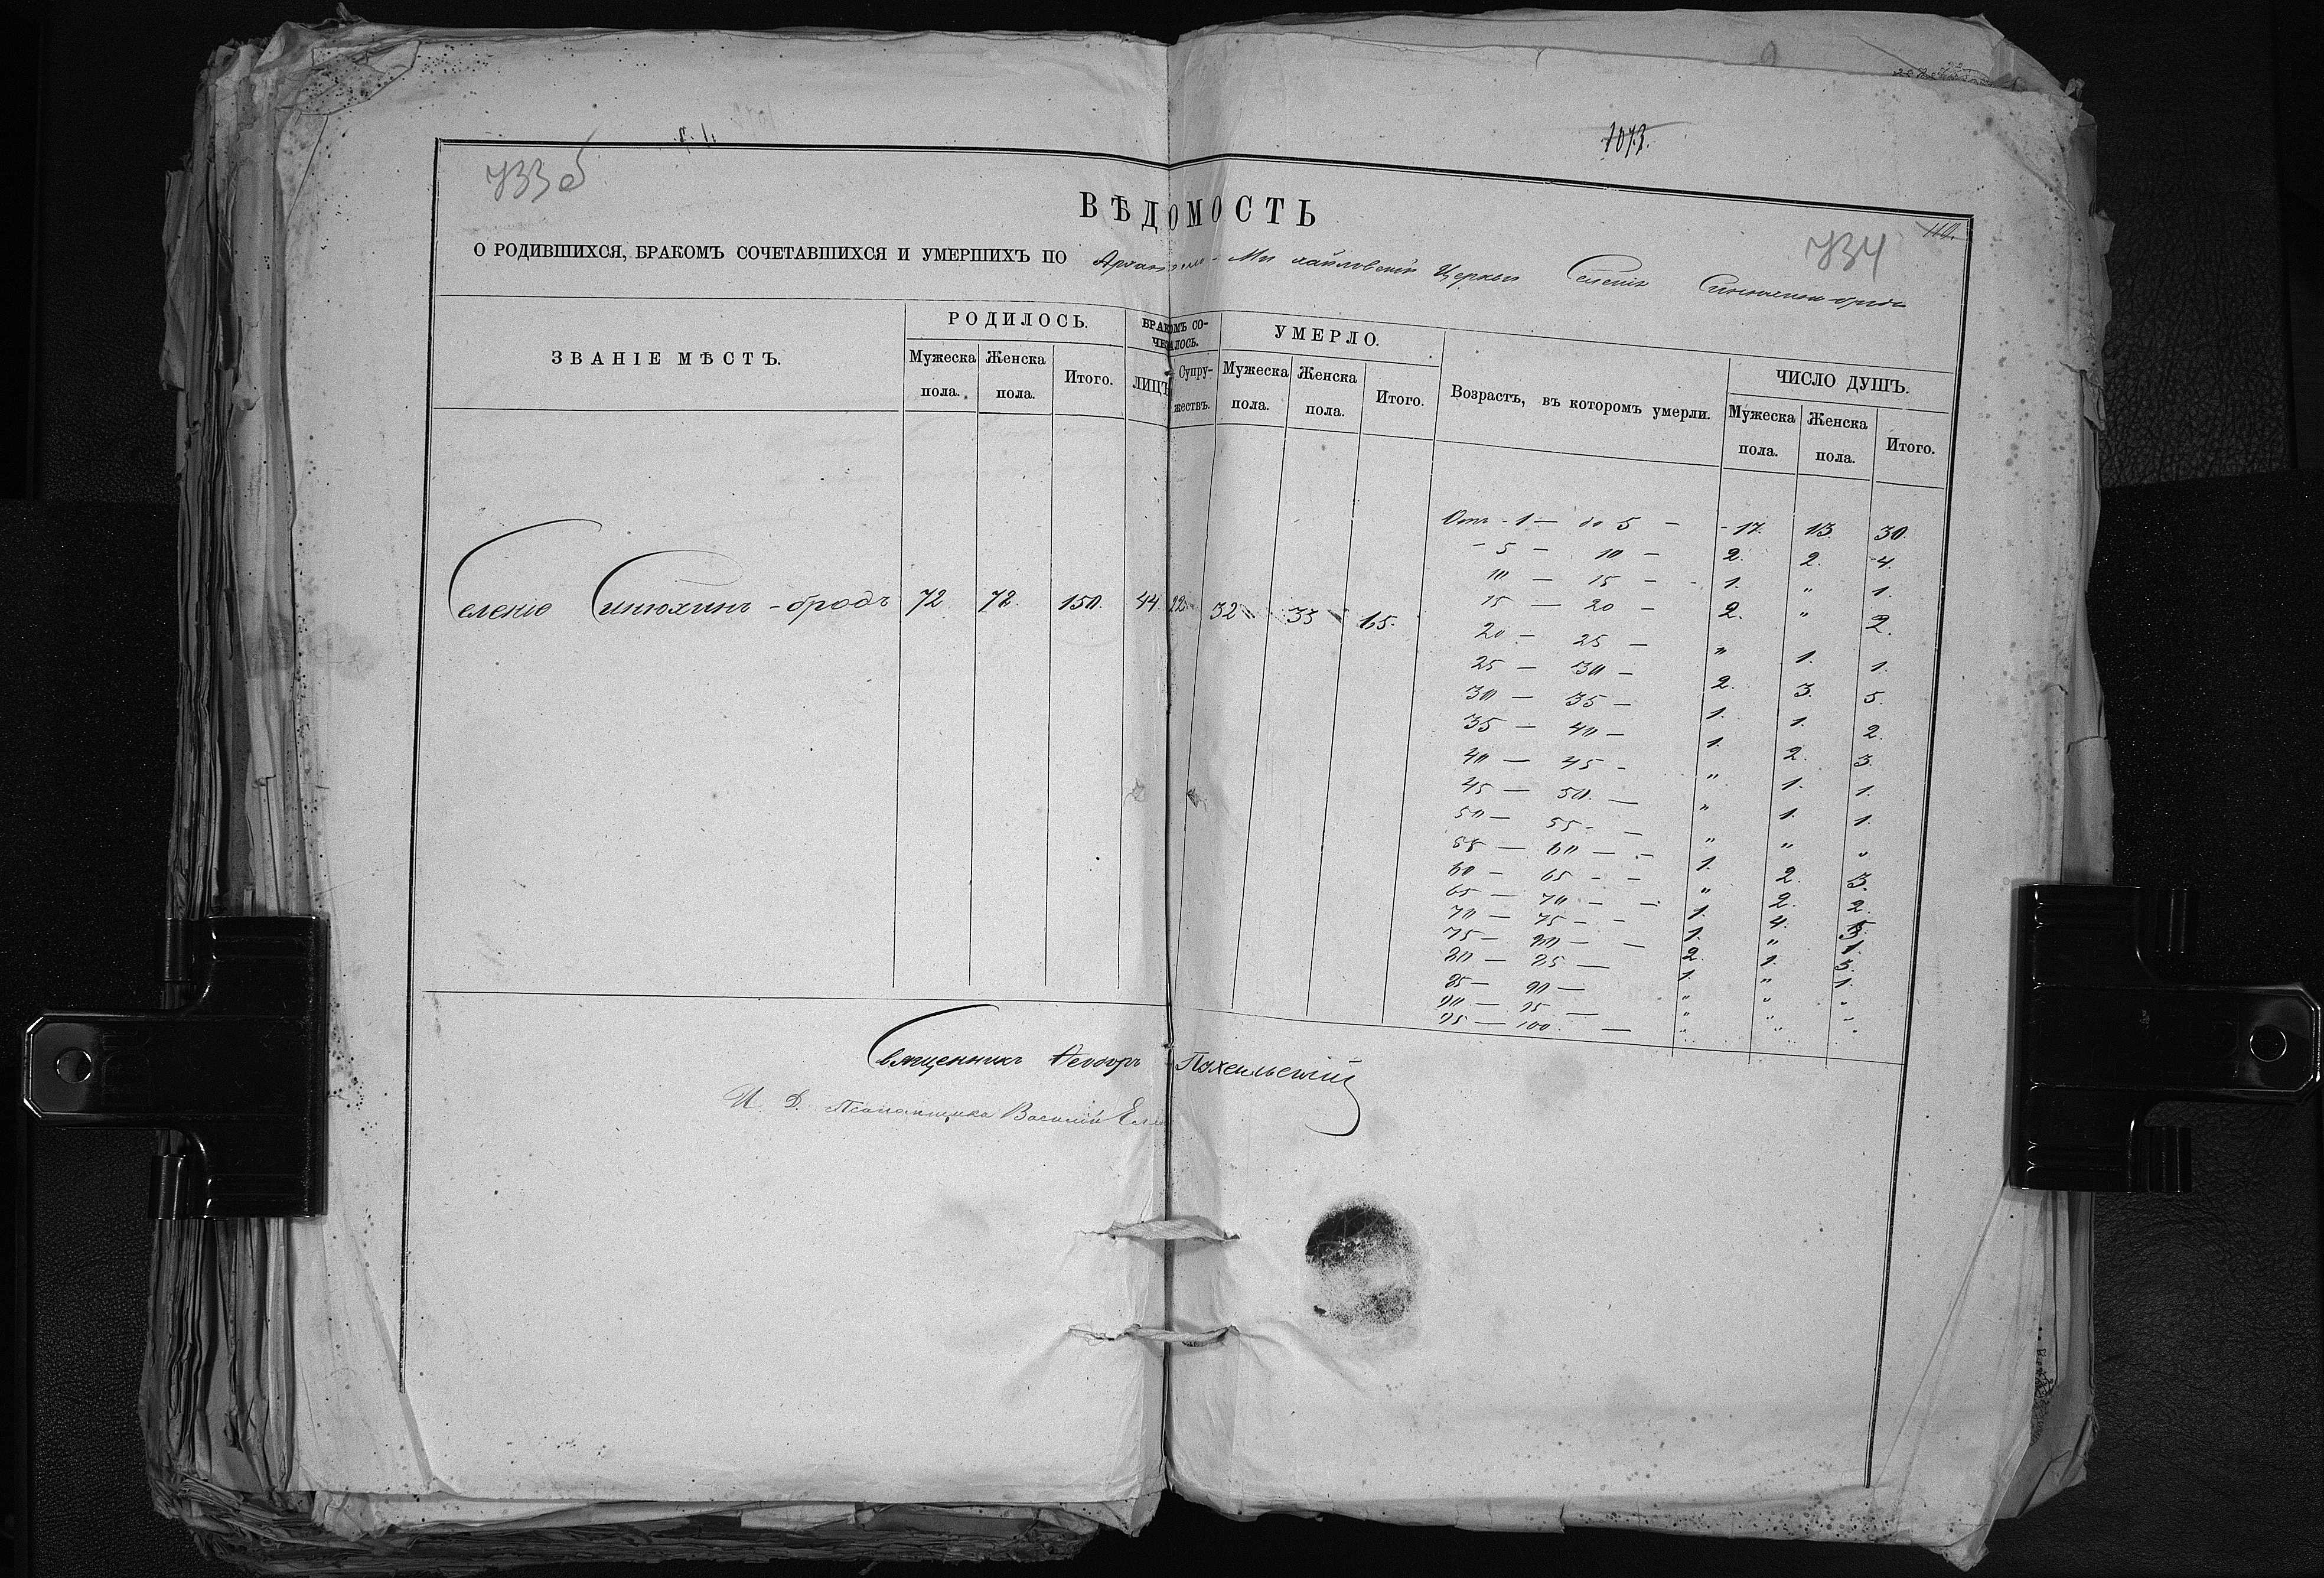 733 б
1073.
734
110.
ВѢДОМОСТЬ
О РОДИВШИХСЯ, БРАКОМЪ СОЧЕТАВШИХСЯ И УМЕРШИХЪ ПО Архангело-Михайловской Церкви Селенія Синюхина-брода
ЗВАНІЕ МѢСТЪ.
РОДИЛОСЬ.
БРАКОМЪ СО-
ЧЕТАЛОСЬ.
УМЕРЛО.
Возрастъ, въ которомъ умерли.
ЧИСЛО ДУШЪ.
Мужеска пола. Женска пола. Итого. ЛИЦЪ Супру-жествъ. Мужеска пола. Женска пола. Итого. Мужеска пола. Женска пола. Итого.
Селеніе Синюхинъ-бродъ 72 72. 150. 44. 22. 32 33 65.
Отъ - 1 — до 5 — 17. 13. 30.
— 5 — 10 — 2. 2. 4.
10 — 15 — 1. " 1.
15 — 20 — 2. " 2.
20 — 25 — " 1. 1.
25 — 30 — 2. 3. 5.
30 — 35 — 1. 1. 2.
35 — 40 — 1. 2. 3.
40 — 45 - " 1. 1.
45 — 50. — " 1. 1.
50 — 55 - — " " "
55 — 60 — - 1. 2. 3.
60 — 65 - — " 2. 2.
65 — 70 - — 1. 4. 5.
70 — 75 - - 1. " 1.
75 — 80 - — 2. 1. 3.
80 — 85 — 1. " 1.
85 — 90 — " " "
90 — 95 — " " "
95 — 100. — " " "
Священникъ Ѳеодоръ
И. Д. Псаломщика Василій